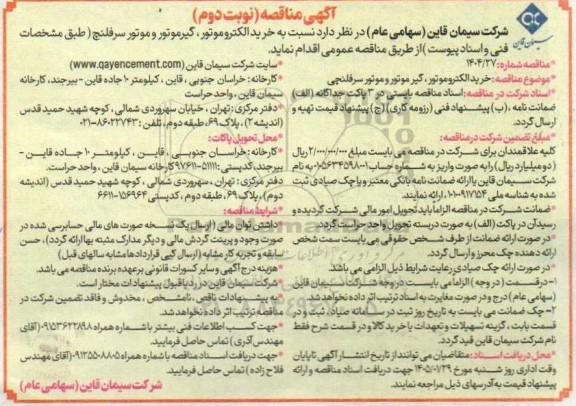 آگهی مناقصه (نوبت دوم)
سیمان قاین
شرکت سیمان قاین (سهامی عام) در نظر دارد نسبت به خرید الکتروموتور، گیرموتور و موتور سرفلنج (طبق مشخصات
فنی و اسناد پیوست) از طریق مناقصه عمومی اقدام نماید.
شماره مناقصه: ۱۴۰۴/۲۷
*موضوع مناقصه: خرید الکتروموتور، گیر موتور و موتور سرفلنجی
*اسناد شرکت در مناقصه: اسناد مناقصه بایستی در ۳ پاکت جداگانه (الف)
ضمانت نامه، (ب) پیشنهاد فنی (رزومه کاری) (ج) پیشنهاد قیمت تهیه و
ارسال گردد.
*مبلغ تضمین شرکت در مناقصه:
کلیه علاقمندان برای شرکت در مناقصه می بایست مبلغ ۲/۰۰۰/۰۰۰/۰۰۰ ریال
(دو میلیارد ریال) را به صورت واریز به شماره حساب ۰۱۰۵۶۳۴۵۹۸۰۰۱ به نام
شرکت سیمان قاین یا ارائه ضمانت نامه بانکی معتبر و یا چک صیادی ثبت
شده به شناسه ملی ارائه نمایند.
*ضمانت شرکت در مناقصه الزاما باید تحویل امور مالی شرکت گردیده و
رسید آن در پاکت (الف) به صورت دربسته تحویل واحد حراست گردد.
*در صورت ارائه ضمانت از طرف شخص حقوقی می بایست سمت شخص
ارائه دهنده چک محرز و ارسال گردد.
*در صورت ارائه چک صیادی رعایت شرایط ذیل الزامی می باشد.
۱-در قسمت (در وجه) الزاما می بایست در وجه شرکت سیمان قاین
(سهامی عام) درج و در صورت مغایرت به اسناد ترتیب اثر داده نخواهد شد
۲- چک ضمانت می بایست به تاریخ روز ثبت در سامانه صیاد ثبت و در
قسمت بابت، گزینه تسهیلات و تعهدات یا خرید کالا و در قسمت شرح فقط
نام شرکت سیمان قاین قید گردد.
*محل دریافت اسناد: متقاضیان می توانند از تاریخ انتشار آگهی تا پایان
وقت اداری روز شنبه مورخ جهت دریافت اسناد مناقصه و ارائه
پیشنهاد قیمت به آدرسهای ذیل مراجعه نمایند.
*سایت شرکت سیمان قاین (www.qayencement.com)
*کارخانه: خراسان جنوبی، قاین، کیلومتر ۱۰ جاده قاین - بیرجند، کارخانه
سیمان قاین، واحد حراست
*دفتر مرکزی: تهران، خیابان سهروردی شمالی، کوچه شهید حمید قدس
(اندیشه۲)، پلاک ۶۹، طبقه دوم، تلفن: ۸۶۰۲۲۷۴۳-۰۲۱
*محل تحویل پاکات:
*کارخانه: خراسان جنوبی، قاین، کیلومتر ۱۰ جاده قاین -
بیرجند، کدپستی: کارخانه سیمان قاین، واحد حراست.
دفتر مرکزی: تهران، سهروردی شمالی، کوچه شهید حمید قدس (اندیشه
دوم)، پلاک ۶۹، طبقه دوم، کدپستی
*شرایط مناقصه:
*داشتن توان مالی (ارسال یک نسخه صورت های مالی حسابرسی شده در
صورت وجود و پرینت گردش مالی و دیگر مدارک مثبته بها ارائه گردد)، حسن
سابقه و تجربه کار مشابه (ارسال کپی قراردادها مشابه سالهای قبل)
*هزینه درج آگهی و سایر کسورات قانونی بر عهده برنده مناقصه می باشد.
*شرکت سیمان قاین در رد یا قبول پیشنهادات مختار است.
*به پیشنهادات ناقص، نامشخص، مخدوش و فاقد تضمین شرکت در
مناقصه ترتیب اثر داده نخواهد شد.
*جهت کسب اطلاعات فنی بیشتر با شماره همراه ۰۹۱۵۳۶۲۲۸۹۸ (آقای
مهندس آذری) تماس حاصل فرمایید.
*جهت دریافت اسناد مناقصه با شماره همراه (آقای مهندس
فلاح زاده) تماس حاصل فرمایید.
شرکت سیمان قاین (سهامی عام)